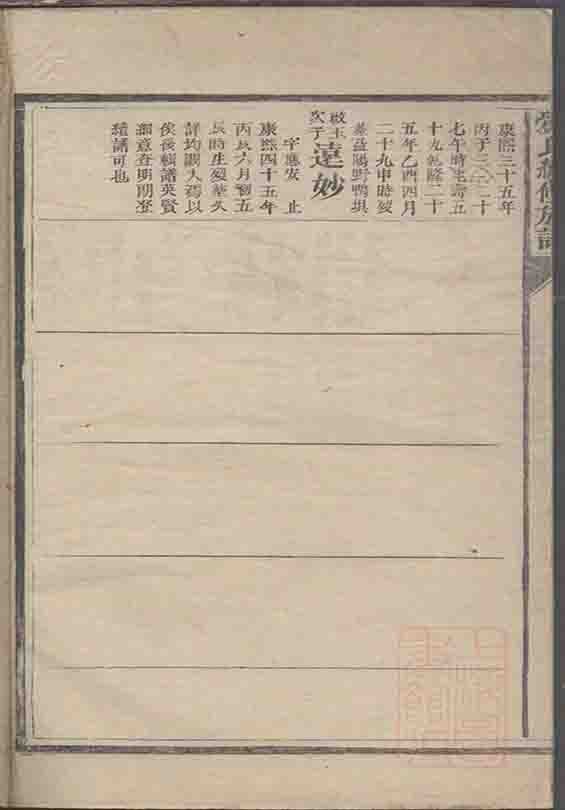 氏續修族譜
康熙三十五年
丙子三 二十
七午時生壽五
十九乾隆二十
五年乙酉四月
二十九申時歿
葬益陽野鴨垻
次子
遠妙
字應安 止
康熙四十五年
丙戌六月初五
辰時生歿葬失
詳均闕入焉以
俟後輯譜英賢
細意查明開登
續譜可也